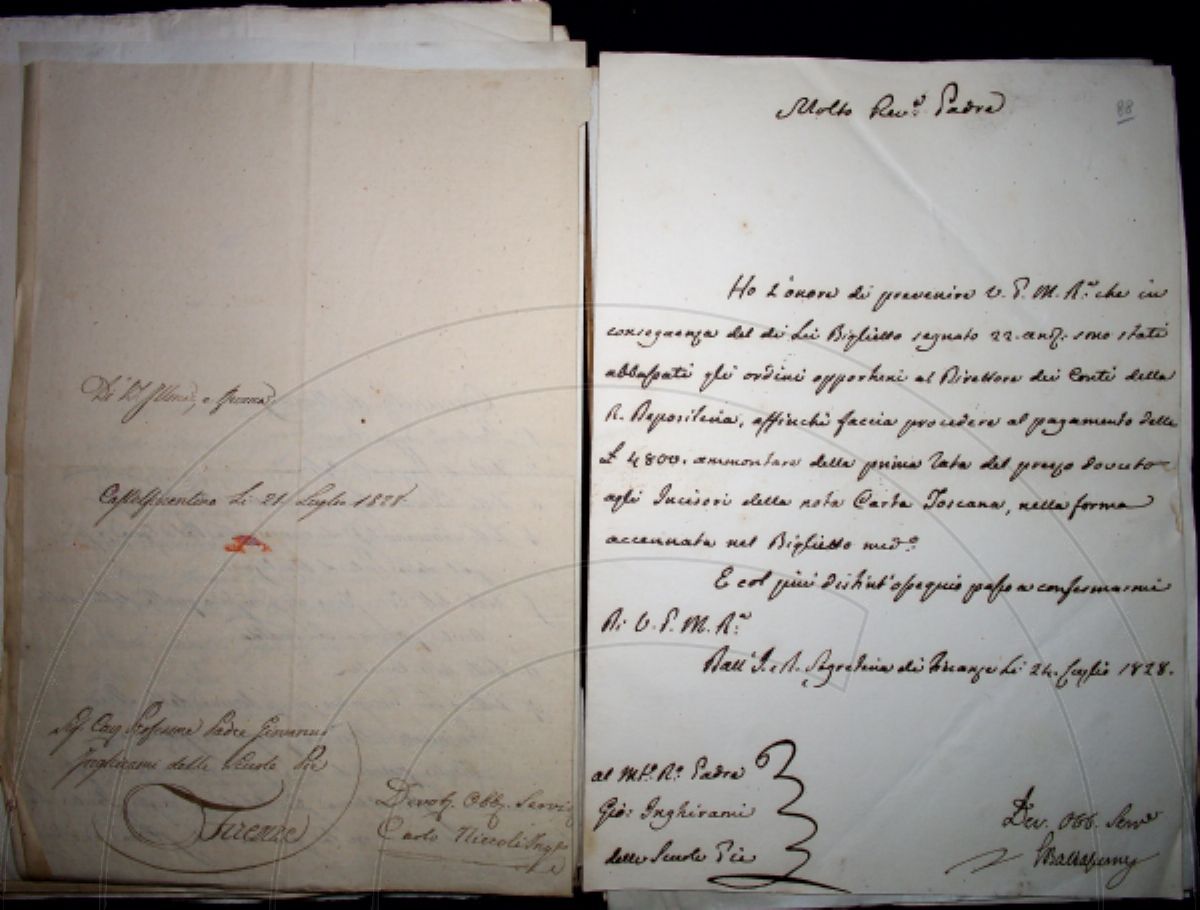 Di V. S. Illma, e
Castelfiorentino li 21 Luglio 1828
Sig. Cav. Professore Padre Giovanni
Inghirami delle Scuole Pie
Firenze
Devot. Obb. Servit
Carlo Niccoli Ing.
88
Molto Rev.do Padre
Ho l'onore di prevenire V. P. M. R.a che in
conseguenza del di Lei Biglietto segnato 22. and. sono stati
abbassati gli ordini opportuni al Direttore dei Conti della
R. Depositeria, affinchè faccia procedere al pagamento delle
£ 4800. ammontare della prima rata del prezzo dovuto
agli Incisori della nota Carta Toscana, nella forma
accennata nel Biglietto med.o
E col più distint'ossequio passo a confermarmi
Di V. P. M. R.a
Dall'I. e R. Segreteria di Finanze li 24. Luglio 1828.
al M.to R.o Padre
Gio: Inghirami
delle Scuole Pie
Dev. Obb. Serv.e